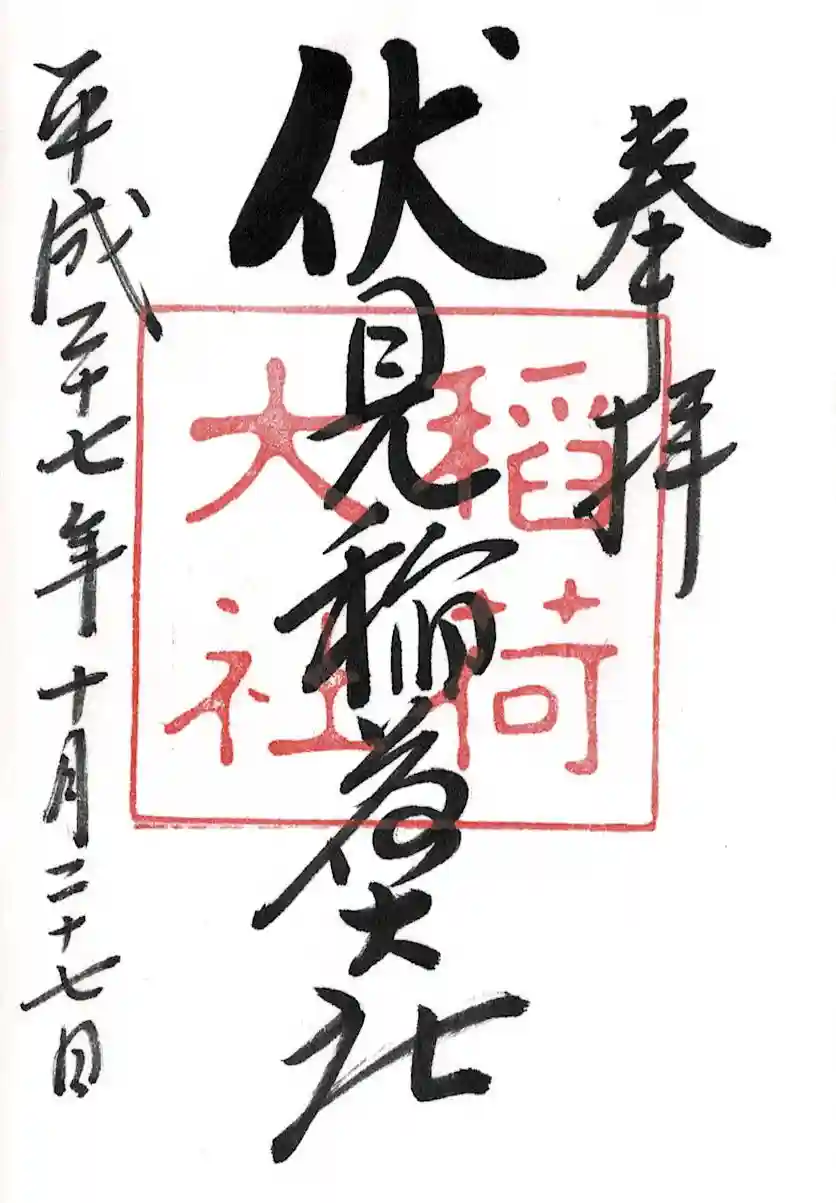 奉拝
伏見稲荷大社
稲荷
大社
平成二十七年十月二十七日